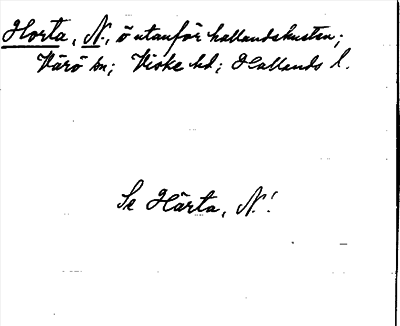 Horta, N., ö utanför hallandskusten;
Värö sn; Viske hd; Hallands l.
Se Hårta, N.!